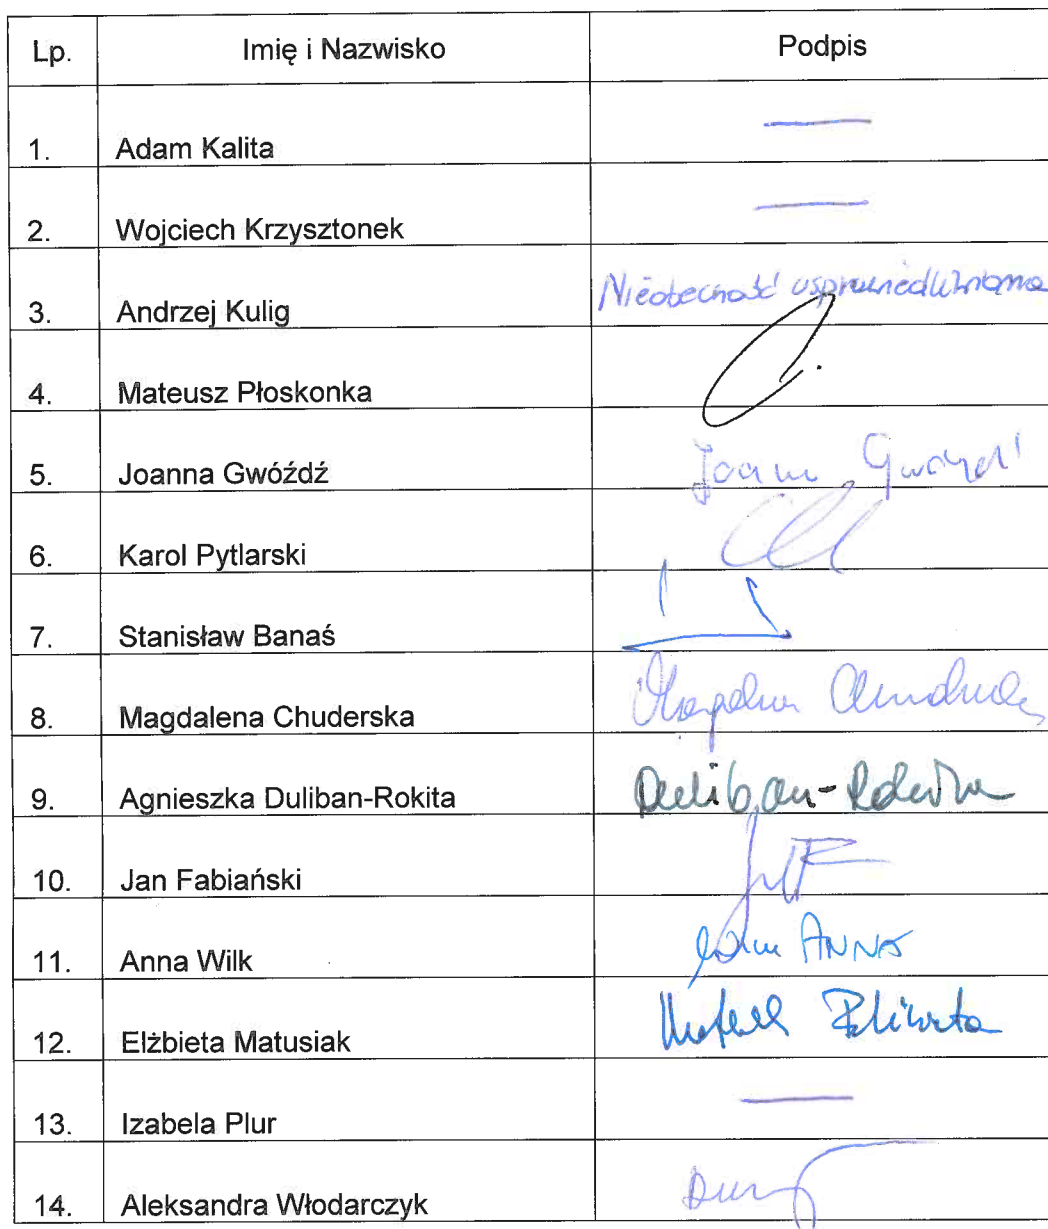 Lp. Imię i Nazwisko Podpis
1. Adam Kalita
2. Wojciech Krzysztonek
3. Andrzej Kulig Nieobecność usprawiedliwiona
4. Mateusz Płoskonka
5. Joanna Gwóźdź Joanna Gwóźdź
6. Karol Pytlarski
7. Stanisław Banaś
8. Magdalena Chuderska Magdalena Chuderska
9. Agnieszka Duliban-Rokita Duliban-Rokita
10. Jan Fabiański
11. Anna Wilk ANNA
12. Elżbieta Matusiak Elżbieta
13. Izabela Plur
14. Aleksandra Włodarczyk